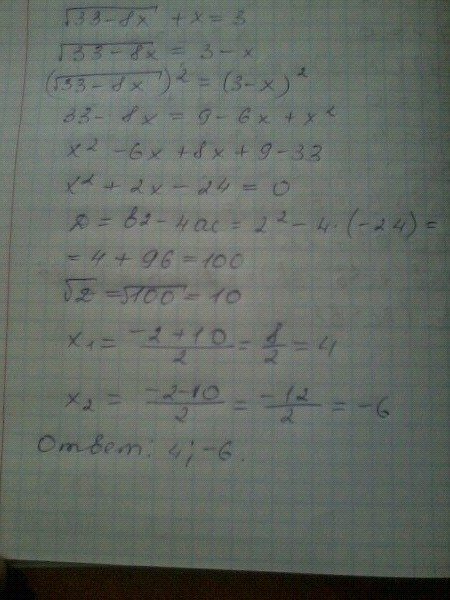 √33-8x + x = 3
√33-8x = 3-x
(√33-8x)² = (3-x)²
33-8x = 9-6x+x²
x²-6x+8x+9-33
x²+2x-24=0
D = b2-4ac = 2²-4·(-24) =
= 4+96=100
√D = √100 = 10
x₁ = -2+10/2 = 8/2 = 4
x₂ = -2-10/2 = -12/2 = -6
Ответ: 4; -6.